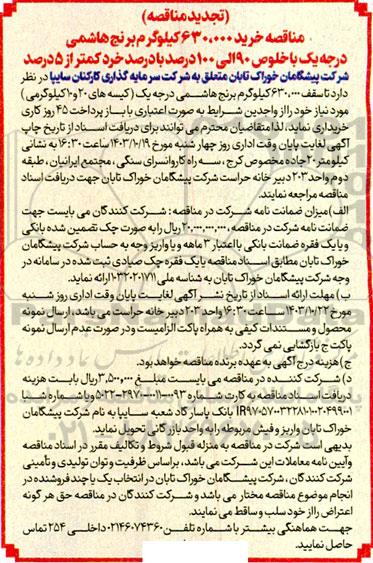 (تجدیدمناقصه)
مناقصه خرید ۶۳۰,۰۰۰ کیلوگرم برنج هاشمی
درجه یک با خلوص ۹۰ الی ۱۰۰ درصد با درصد خرد کمتر از ۵ درصد
شرکت پیشگامان خوراک تابان متعلق به شرکت سرمایه گذاری کارکنان سایپا در نظر
دارد تا سقف ۶۳۰,۰۰۰ کیلوگرم برنج هاشمی درجه یک (کیسه های ۲۰ و ۱۰ کیلوگرمی)
مورد نیاز خود را از واجدین شرایط به صورت اعتباری با باز پرداخت ۴۵ روز کاری
خریداری نماید، لذا متقاضیان محترم می توانند برای دریافت اسناد از تاریخ چاپ
آگهی لغایت پایان وقت اداری روز چهار شنبه مورخ ۱۴۰۳/۱۰/۱۹ ساعت ۱۶:۳۰ به نشانی
کیلومتر ۲۰ جاده مخصوص کرج، سه راه کاروانسرای سنگی، مجتمع ایرانیان، طبقه
دوم واحد ۲۰۳ دبیر خانه حراست شرکت پیشگامان خوراک تابان جهت دریافت اسناد
مناقصه مراجعه نمایند.
الف) میزان ضمانت نامه شرکت در مناقصه: شرکت کنندگان می بایست جهت
ضمانت نامه شرکت در مناقصه، ۲۰,۰۰۰,۰۰۰,۰۰۰ ریال را به صورت چک تضمین شده بانکی
و یا یک فقره ضمانت بانکی با اعتبار ۳ ماهه و یا واریز وجه به حساب شرکت پیشگامان
خوراک تابان مطابق اسناد مناقصه یا یک فقره چک صیادی ثبت شده در سامانه در
وجه شرکت پیشگامان خوراک تابان به شناسه ملی ۱۰۳۲۰۲۰۱۷۱۱ ارائه نماید.
ب) مهلت ارائه اسناد از تاریخ نشر آگهی لغایت پایان وقت اداری روز شنبه
مورخ ۱۴۰۳/۱۰/۲۲ ساعت ۱۶:۳۰ واحد ۲۰۳ دبیر خانه حراست می باشد، ارسال نمونه
محصول و مستندات کیفی به همراه پاکت الزامیست و در صورت عدم ارسال نمونه
پاکت ج بازگشایی نمی گردد.
ج) هزینه درج آگهی به عهده برنده مناقصه خواهد بود.
د) شرکت کننده در مناقصه می بایست مبلغ ۳,۵۰۰,۰۰۰ ریال بابت هزینه
دریافت اسناد مناقصه به کارت شماره
بانک پاسارگاد شعبه سایپا به نام شرکت پیشگامان
خوراک تابان واریز و فیش مربوطه را به واحد بازرگانی تحویل نماید.
بدیهی است شرکت در مناقصه به منزله قبول شروط و تکالیف مقرر در اسناد مناقصه
و آیین نامه معاملات این شرکت می باشد، براساس ظرفیت و توان تولیدی و تأمینی
شرکت کنندگان، شرکت پیشگامان خوراک تابان در انتخاب یک یا چند فروشنده در
انجام موضوع مناقصه مختار می باشد و شرکت کنندگان در مناقصه حق هر گونه
اعتراض را از خود سلب و ساقط می نمایند.
جهت هماهنگی بیشتر با شماره تلفن ۰۲۱۴۶۰۷۴۳۶۰ داخلی ۲۵۴ تماس
حاصل نمایید.